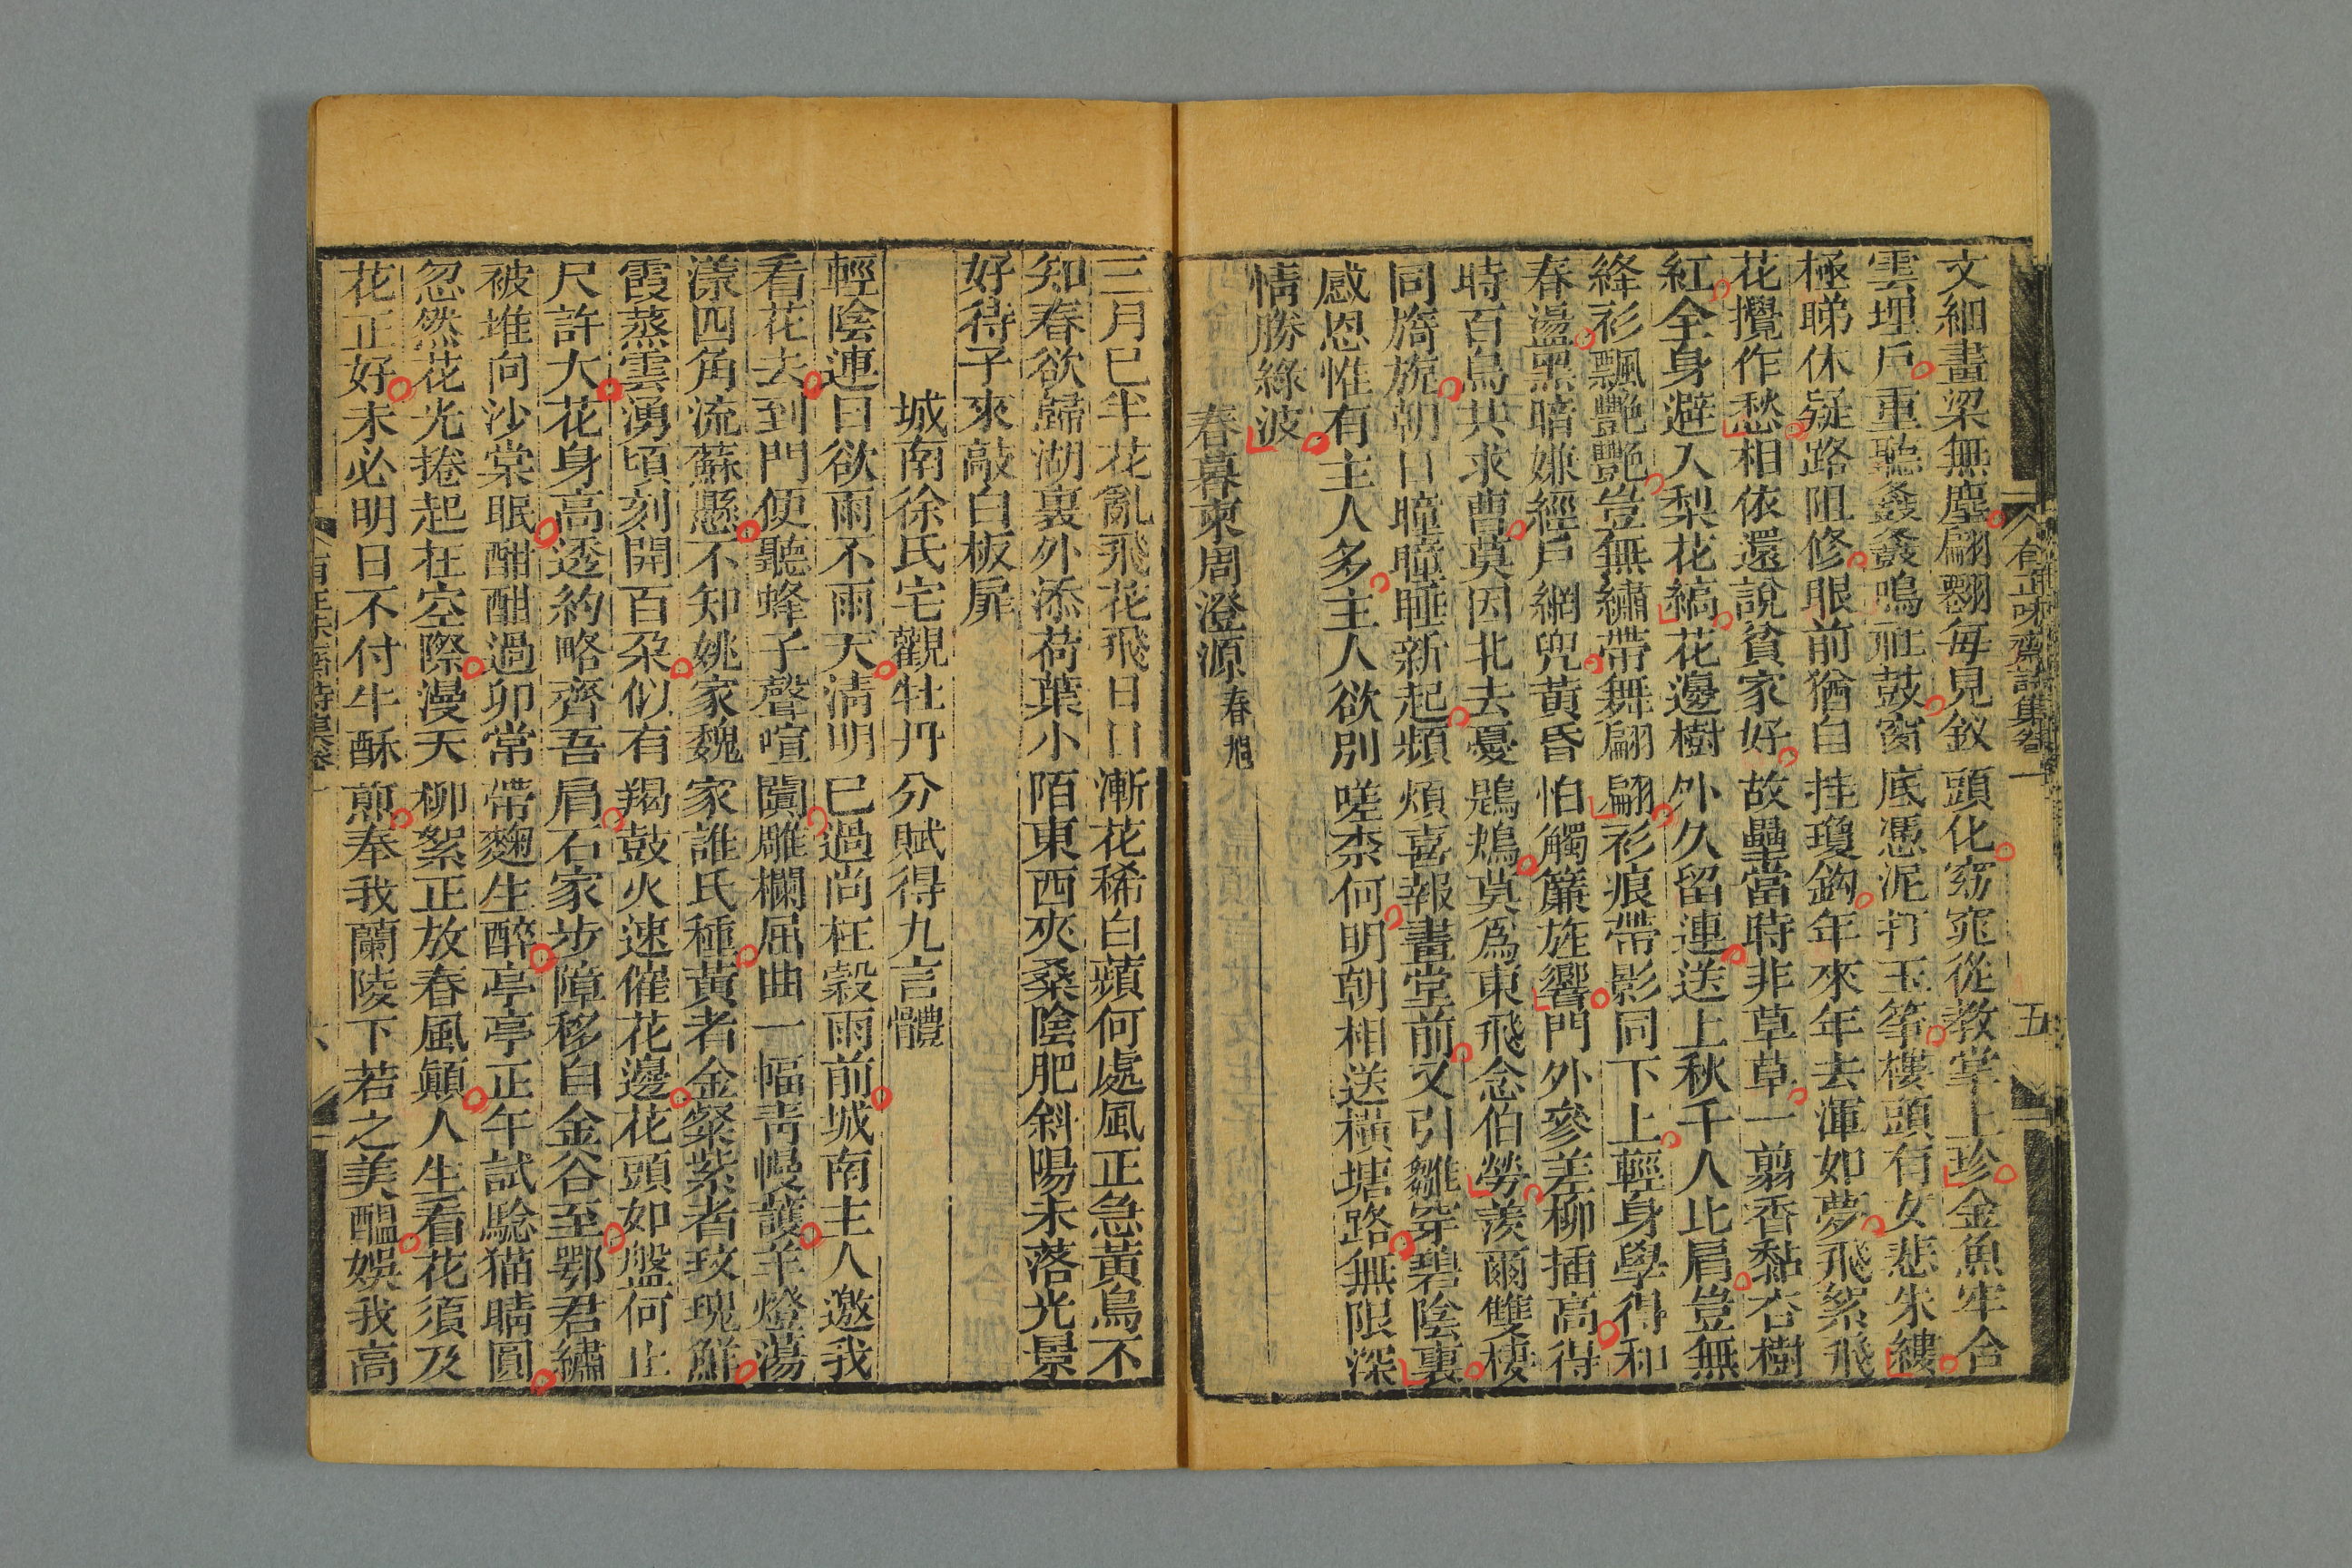 有正味齋詩集卷一
五
文細畫梁無塵翩翾每見釵頭化窈窕從教掌上珍金魚牢合
雲埋戶重聽鼓鳴社鼓窗底憑泥打玉箏樓頭有女悲朱縷
極睇休疑路阻修眼前猶自挂瓊鈎年來年去渾如夢飛絮飛
花攪作愁相依還說貧家好故壘當時非草草一翦香黏杏樹
紅全身避入梨花縞花邊樹外久留連送上秋千人比肩豈無
絳衫飄艷艷豈無繡帶舞翩翩衫痕帶影同下上輕身學得和
春盪黑暗嫌經戶網兜黃昏怕觸簾旌響門外參差柳插高得
時百鳥共求曹莫因北去憂鶗鴂莫爲東飛念伯勞羨爾雙棲
同旖旎朝日曈曈睡新起頻煩喜報畫堂前又引雛穿碧陰裏
感恩惟有主人多主人欲別嗟柰何明朝相送橫塘路無限深
情勝綠波
春暮柬周澄源春旭
三月已半花亂飛花飛日日漸花稀白蘋何處風正急黃鳥不
知春欲歸湖裏外添荷葉小陌東西夾桑陰肥斜陽未落光景
好待子來敲白板扉
城南徐氏宅觀牡丹分賦得九言體
輕陰連日欲雨不雨天淸明已過尚在穀雨前城南主人邀我
看花去到門便聽蜂子聲喧闐雕欄屈曲一幅靑幔護羊燈蕩
漾四角流蘇懸不知姚家魏家誰氏種黃者金粲紫者玫瑰鮮
霞蒸雲湧頃刻開百朵似有羯鼓火速催花邊花頭如盤何止
尺許大花身高透約略齊吾肩石家步障移自金谷至鄂君繡
被堆向沙棠眠酣酣過卯常帶麴生醉亭亭正午試騐猫睛圓
忽然花光捲起在空際漫天柳絮正放春風顚人生看花須及
花正好未必明日不付牛酥煎奉我蘭陵下若之美醞娛我高
有正味齋詩集卷一
六